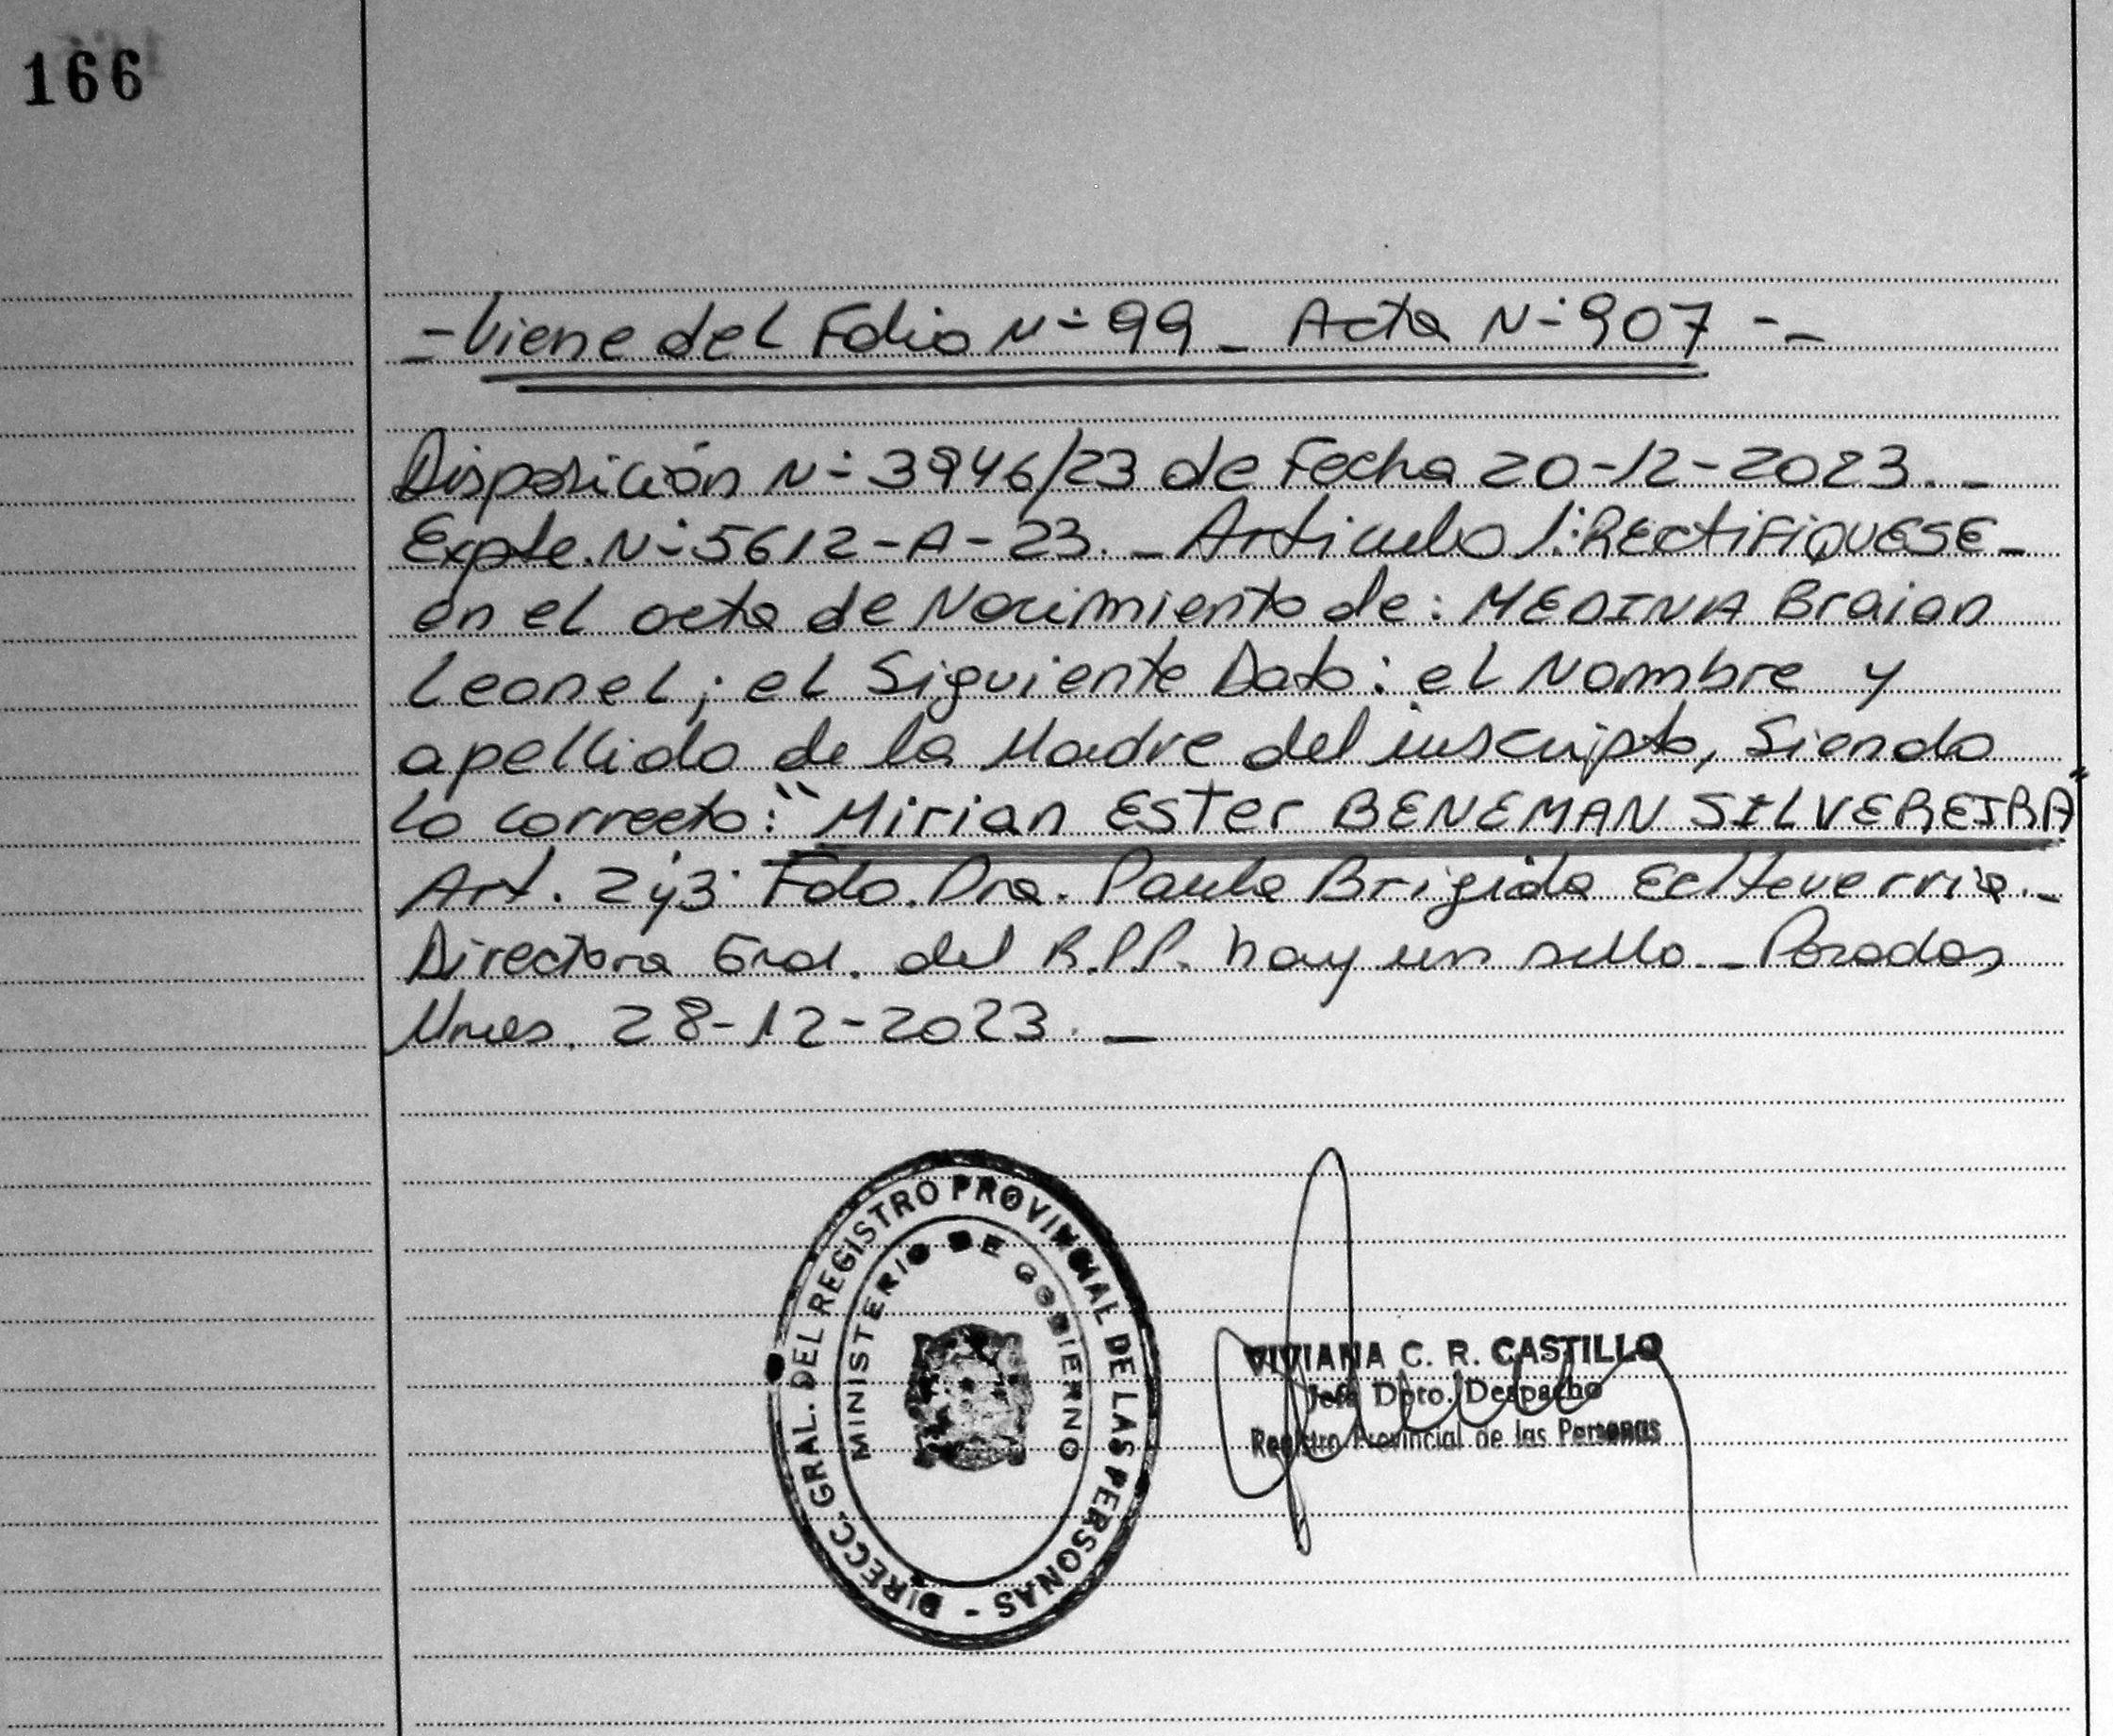 166
- Viene del Folio N° 99 - Acta N° 907 --
Disposición N° 3946/23 de Fecha 20-12-2023. -
Expte. N° 5612-A-23. - Articulo 1: RECTIFIQUESE -
en el acta de Nacimiento de: MEDINA Braian
Leonel; el Siguiente Dato: el Nombre y
apellido de la Madre del inscripto, Siendo
Lo correcto: "Mirian Ester BENEMAN SILVEREIRA"
Art. 2 y 3. Fdo. Dra. Paula Brigida Echeverria. -
Directora Gral. del R.P.P. hay un sello. - Posadas
Mnes. 28-12-2023. -
DIRECC. GRAL. DEL REGISTRO PROVINCIAL DE LAS PERSONAS -
MINISTERIO DE GOBIERNO
VIVIANA C. R. CASTILLO
Jefe Dpto. Despacho
Registro Provincial de las Personas